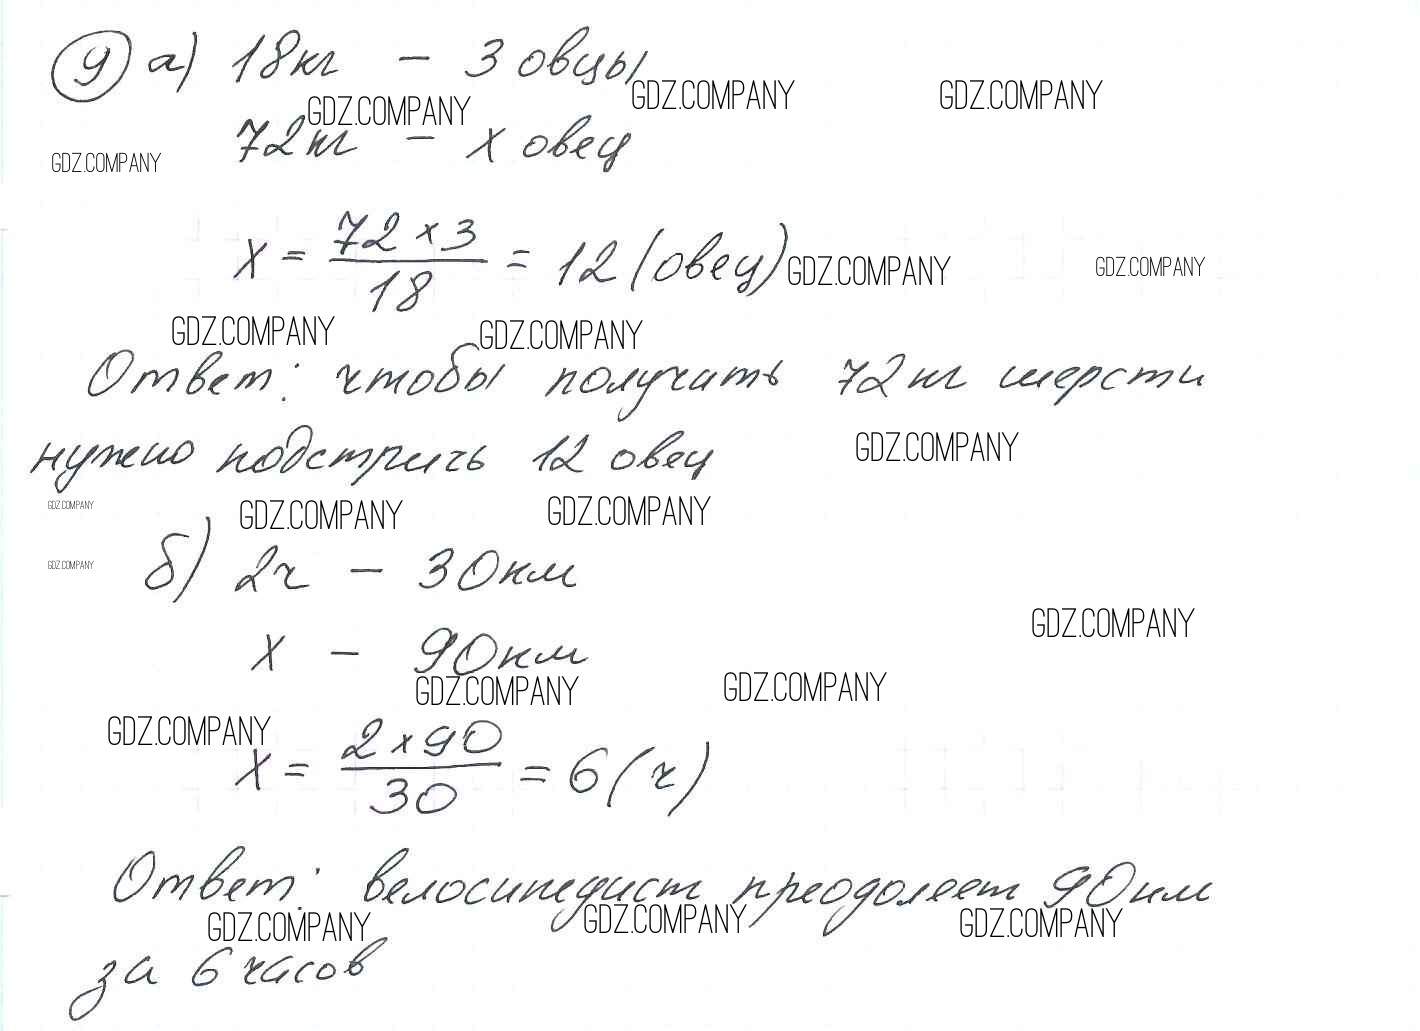 9 а) 18кг - 3 овцы
GDZ.COMPANY GDZ.COMPANY GDZ.COMPANY
72кг - х овец
GDZ.COMPANY
х = 72 × 3 / 18 = 12 (овец)
GDZ.COMPANY GDZ.COMPANY
GDZ.COMPANY GDZ.COMPANY
Ответ: чтобы получать 72кг шерсти
нужно подстричь 12 овец
GDZ.COMPANY
GDZ.COMPANY GDZ.COMPANY GDZ.COMPANY
GDZ.COMPANY
б) 2ч - 30км
GDZ.COMPANY
х - 90км
GDZ.COMPANY GDZ.COMPANY
GDZ.COMPANY
х = 2 × 90 / 30 = 6 (ч)
Ответ: велосипедист преодолеет 90км
GDZ.COMPANY GDZ.COMPANY GDZ.COMPANY
за 6 часов